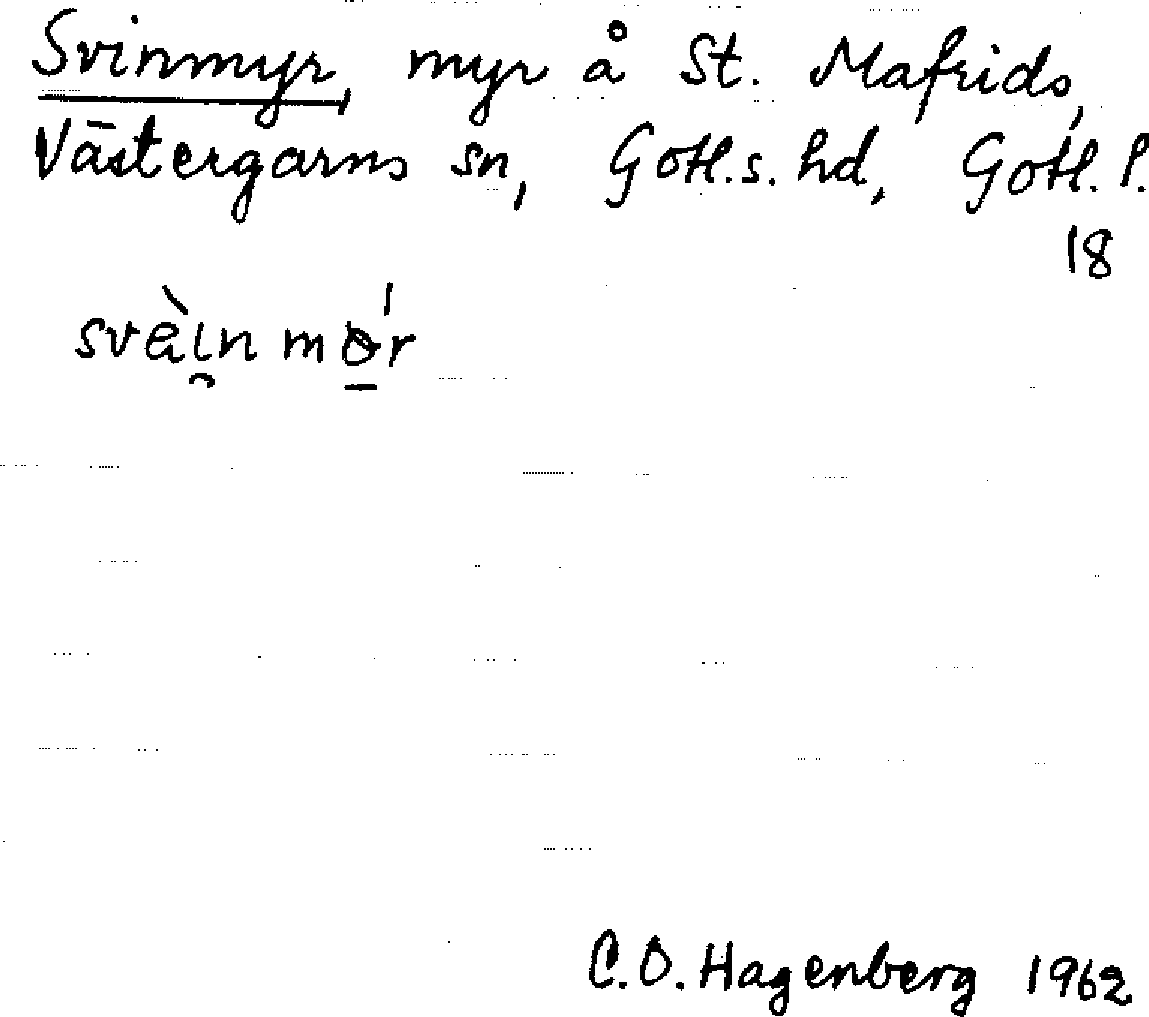 Svinmyr, myr å St. Mafrids,
Västergarns sn, Gotl. s. hd, Gotl. l.
18
svèi̯n mɵ̲́r
C.O. Hagenberg 1962